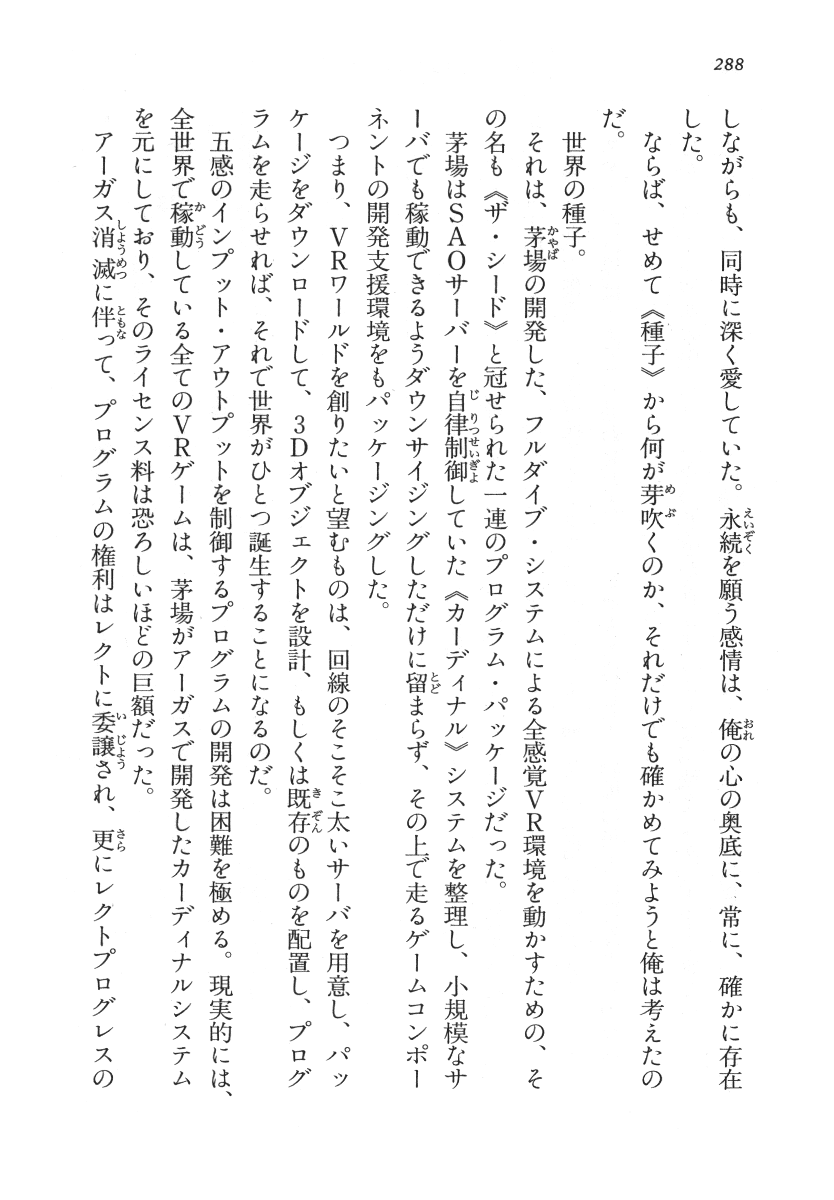 288
しながらも、同時に深く愛していた。永続を願う感情は、俺の心の奥底に、常に、確かに存在
した。
ならば、せめて《種子》から何が芽吹くのか、それだけでも確かめてみようと俺は考えたの
だ。
世界の種子。
それは、茅場の開発した、フルダイブ・システムによる全感覚VR環境を動かすための、そ
の名も《ザ・シード》と冠せられた一連のプログラム・パッケージだった。
茅場はSAOサーバーを自律制御していた《カーディナル》システムを整理し、小規模なサ
ーバでも稼動できるようダウンサイジングしただけに留まらず、その上で走るゲームコンポー
ネントの開発支援環境をもパッケージングした。
つまり、VRワールドを創りたいと望むものは、回線のそこそこ太いサーバを用意し、パッ
ケージをダウンロードして、3Dオブジェクトを設計、もしくは既存のものを配置し、プログ
ラムを走らせれば、それで世界がひとつ誕生することになるのだ。
五感のインプット・アウトプットを制御するプログラムの開発は困難を極める。現実的には、
全世界で稼動している全てのVRゲームは、茅場がアーガスで開発したカーディナルシステム
を元にしており、そのライセンス料は恐ろしいほどの巨額だった。
アーガス消滅に伴って、プログラムの権利はレクトに委譲され、更にレクトプログレスの